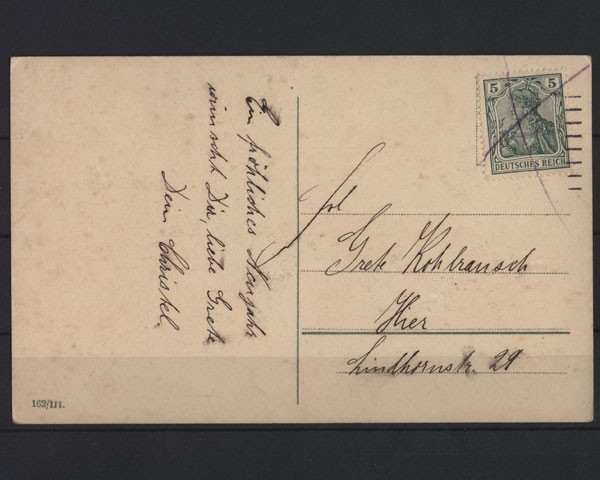 Ein fröhliches Neujahr
wünscht Dir, liebe Grete
Dein Christel.
5 5
DEUTSCHES REICH
Frl.
Grete Kohlrausch
Hier
Lindhornstr. 29
162/III.